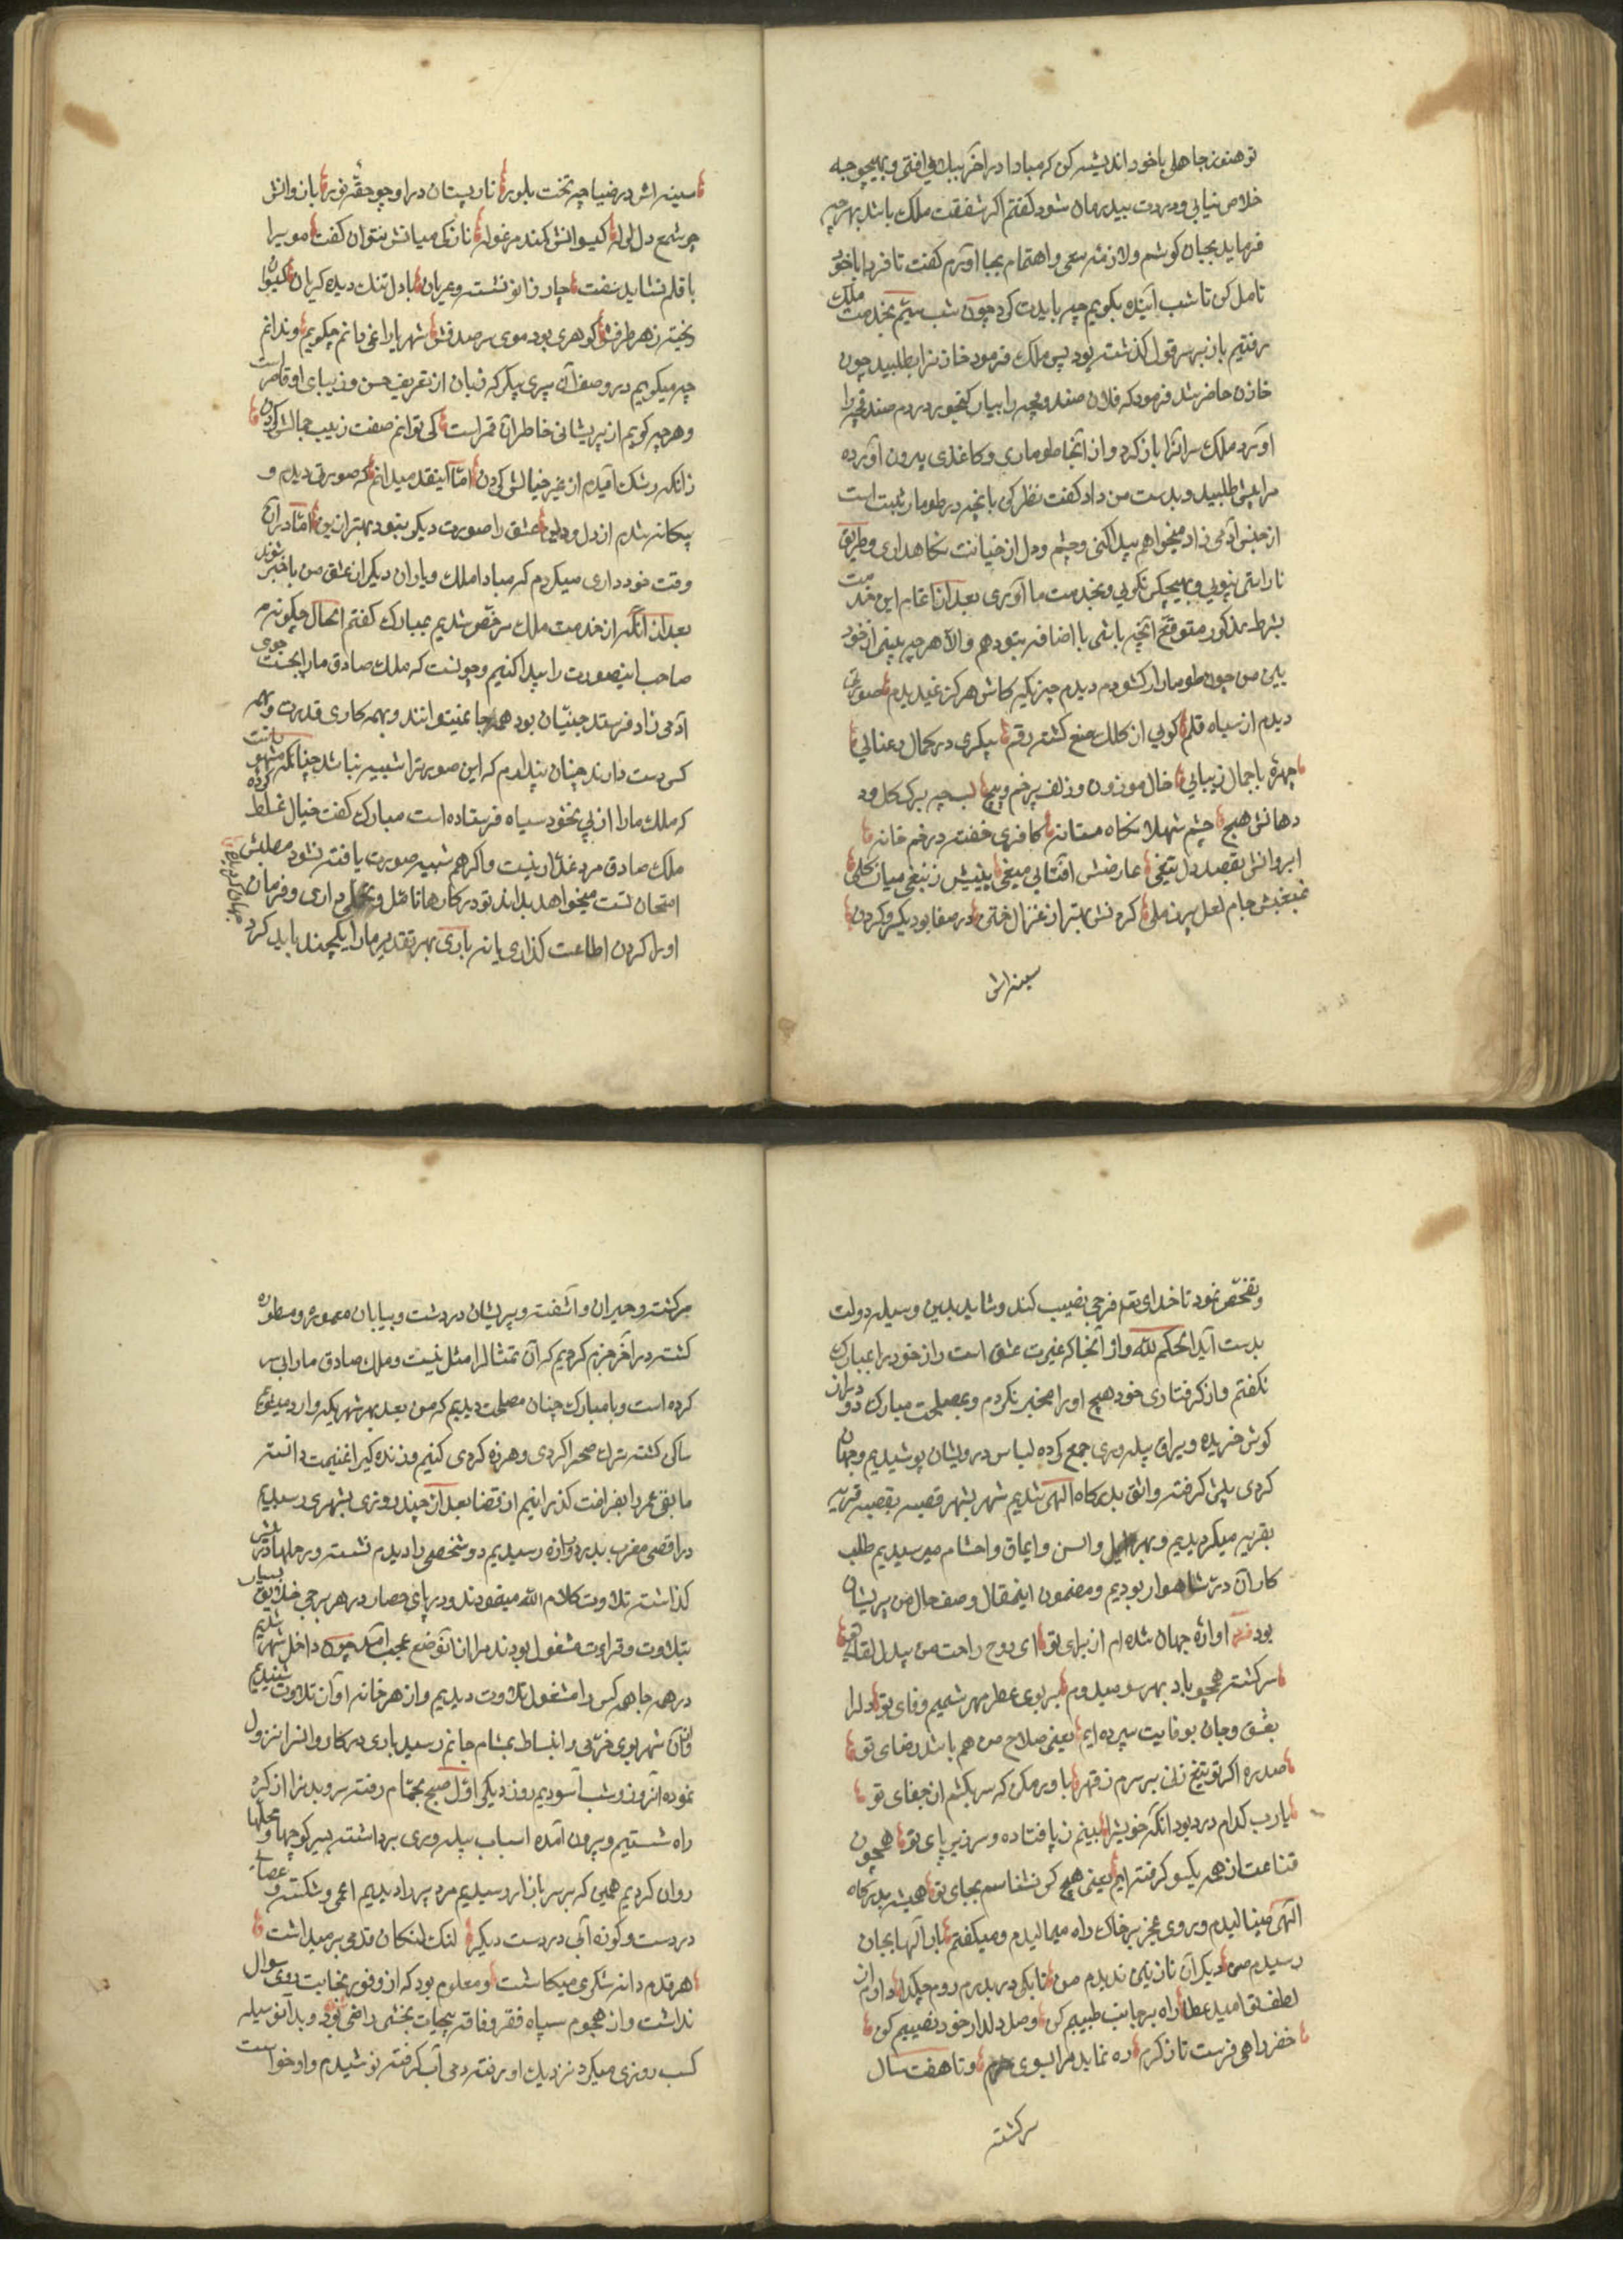 تو هنوز جاهلی با خود اندیشه کن که مبادا در آخر ببلائی افتی و بهیچوجه
خلاص نیابی و دردت بیدرمان شود گفتم اگر شفقت ملک باشد بهرچه
فرماید بجان کوشم و لازمهٔ سعی و اهتمام بجا آورم گفت تا فردا با خود
تامل کن تا شب آینده بگویم چه بایدت کرد چون شب شد بخدمت ملک
رفتیم باز بر سر قول گذشته بود پس ملک فرمود خازنرا بطلبید چون
خازن حاضر شد فرمود که فلان صندوقچه را بیار گنجور در دم صندوقچه را
آورد ملک سر آنرا باز کرد و از آنجا طوماری و کاغذی بیرون آورده
مرا پیش طلبید و بدست من داد گفت نظر کن بانچه در طومار ثبت است
از جنس آدمی زاد میخواهم پیدا کنی و چشم و دل از خیانت نگاهداری و طریق
ناراستی نپویی و بهیچکس نگویی و بخدمت ما آوری بعد از اتمام این خدمت
بشرط مذکور متوقع آنچه باشی با اضافه بتو دهم والا هرچه بینی از خود
بینی من چون طومار را گشودم دیدم چیزیکه کاش هرگز نمیدیدم صورتی
دیدم از سیاه قلم گویی از کلک صنع گشته رقم پیکری در کمال رعنائی
چهرهٔ با جمال زیبائی خال موزون و زلف پرخم و پیچ لب چه برک گل و
دهانش هیچ چشم شهلا نگاه مستانه کافری خفته در خم خانه
ابروانش بقصد دل تیغی عارضش آفتابی میغی بینیش زنبقی میان گلی
غبغبش جام لعل پر ز ملی گردنش بهتر از غزال ختن در صفا بود
سینه اش
سینه اش در ضیا چه تخت بلور نار پستان در او چو حقهٔ نور
چو شمع دل گیسوانش کمند مرغوله نازکی میانش نتوان گفت مو برا
با قلم نشاید سفت چار زانو نشسته و عریان با دل تنک دیده گریان گیسوان
ریخته ز هر طرفش گوهری بود موی سر صدفش شهریارا نمیدانم چگویم و ندانم
چه میگویم در وصف آن پری پیکر که زبان از تعریف حسن و زیبای او قاصر است
و هرچه گویم از پریشانی خاطر آن قمر است کی توانم صفت زیب جمالش کردن
زانکه رشک آیدم از غیر خیالش کردن اما اینقدر میدانم که صورتی دیدم و
بیگانه شدم از دل و دین عشق را صورت دیگر نبود بهتر ازین اما در آن
وقت خودداری میکردم که مبادا ملک و یاران دیگر از عشق من باخبر شوند
بعد از آنکه از خدمت ملک مرخص شدیم بمبارک گفتم الحال چگونه
صاحب اینصورت را پیدا کنیم و چونست که ملک صادق ما را بجست جوی
آدمی زاد فرستد جنیان بود همه جا نمیتوانند و بهمه کاری قدرت و بهمه
کس دست دارند چنان پندارم که این صورترا شبیه نباشد چنانکه مشهور است
که ملک ما را از پی نخود سیاه فرستاده است مبارک گفت خیال غلط کرده
ملک صادق مرد غدار نیست و اگر هم شبیه صورت یافته نشود مطلبش
امتحان تست میخواهد بداند تو در کارها تامل و تحمل داری و فرمان
او را گردن اطاعت گذاری یا نه باری بهر تقدیر ما را یکچند باید کرد
جهان گردید
و تفحص نمود تا خدای تعالی فرجی نصیب کند و شاید بدین وسیله دولت
بدست آید الحکم لله و از آنجا که غیرت عشق است راز خود را بمبارک
نگفتم و از گرفتاری خود هیچ او را مخبر نکردم و بمصلحت مبارک دو دراز
گوش خریده و یراق پیله وری جمع کرده لباس درویشان پوشیدیم و جهان
گردی پیش گرفته واثق بدرگاه الهی شدیم شهر بشهر قصبه بقصبه قریه
بقریه میگردیدیم و بهر ایل و الس و ایماق و احشام میرسیدیم طلب
کار آن در شاهوار بودیم و مضمون اینمقال وصف حال من پریشان
بود شعر آوارهٔ جهان شده ام از برای تو ای روح راحت من بیدل لقای تو
سرگشته همچو باد بهر سو میدوم بر بوی عطر مهر شمیم وفای تو دلرا
بعشق و جان بوفایت سپرده ایم یعنی صلاح من هم باشد رضای تو
صد ره اگر تو تیغ زنی بر سرم ز قهر باور مکن که سر بکشم از جفای تو
یارب کدام درد بود آنکه خویشرا بینم ز پا فتاده و سر زیر پای تو همچون
قناعت از همه یکسو گرفته ایم یعنی هیچ کس نشناسم بجای تو همیشه بدرگاه
الهی مینالیدم و روی عجز بر خاک راه میمالیدم و میگفتم بار الها بجان
رسیدم من دیگر آن نازنین ندیدم من تا بکی در بدر روم چکدا دارم از
لطف تو امید عطا راه بر جانب طبیبم کن وصل دلدار خود نصیبم کن
خضر راهی فرست تا ز کرم ره نماید مرا بسوی حرم و تا هفت سال
سرگشته
سرگشته و حیران و آشفته و پریشان در دشت و بیابان معموره و مطموره
گشته در آخر جزم کردیم که آن تمثال را مثل نیست و ملک صادق ما را پی سر
کرده است و با مبارک چنان مصلحت دیدیم که من بعد بهر شهریکه وارد میشویم
ساکن گشته ترک صحرا گردی و هرزه گردی کنیم و زنده گیرا غنیمت دانسته
مابقی عمر را بفراغت گذرانیم از قضا بعد از چند روزی بشهری رسیدیم
در اقصی مغرب بدر دروازه رسیدیم دو شخصی را دیدم نشسته و رحلها در پیش
گذاشته تلاوت کلام الله مینمودند و در پای حصار در هر برجی خلایق بسیار
بتلاوت و قراءت مشغول بودند مرا از آنوضع عجب آمد چون داخل شهر شدیم
در همه جا همه کس را مشغول تلاوت دیدیم و از هر خانه آواز تلاوت شنیدیم
و از آن شهر بوی خرمی و انبساط بمشام جانم رسید باری در کاروانسرا نزول
نموده آنروز و شب آسودیم روز دیگر اول صبح بحمام رفته سر و بدنرا از گرد
راه شستیم و بیرون آمده اسباب پیله وری برداشته بسر کوچها و محلها
روان کردیم همین که بر سر بازار رسیدیم مرد پیر را دیدیم اعمی و شکسته و عصائی
در دست و کوزه آبی در دست دیگر لنک لنکان قدمی بر میداشت
هر قدم دانه شکری میکاشت و معلوم بود که از وفور نجابت روی سوال
نداشت و از هجوم سپاه فقر و فاقه بحیات بخشی راضی بود و بدآنوسیله
کسب روزی میکرد نزدیک او رفته دمی آب گرفته نوشیدم و او خواست